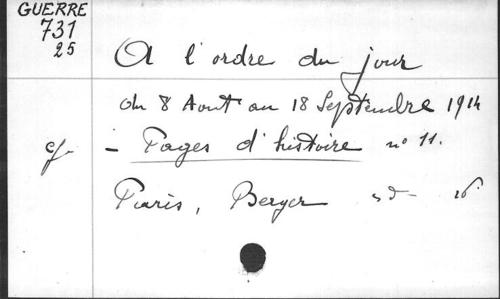 GUERRE
731
25
A l'ordre du jour
du 8 Aout au 18 Septembre 1914
cf - Pages d'histoire no 11.
Paris, Berger sd in 16